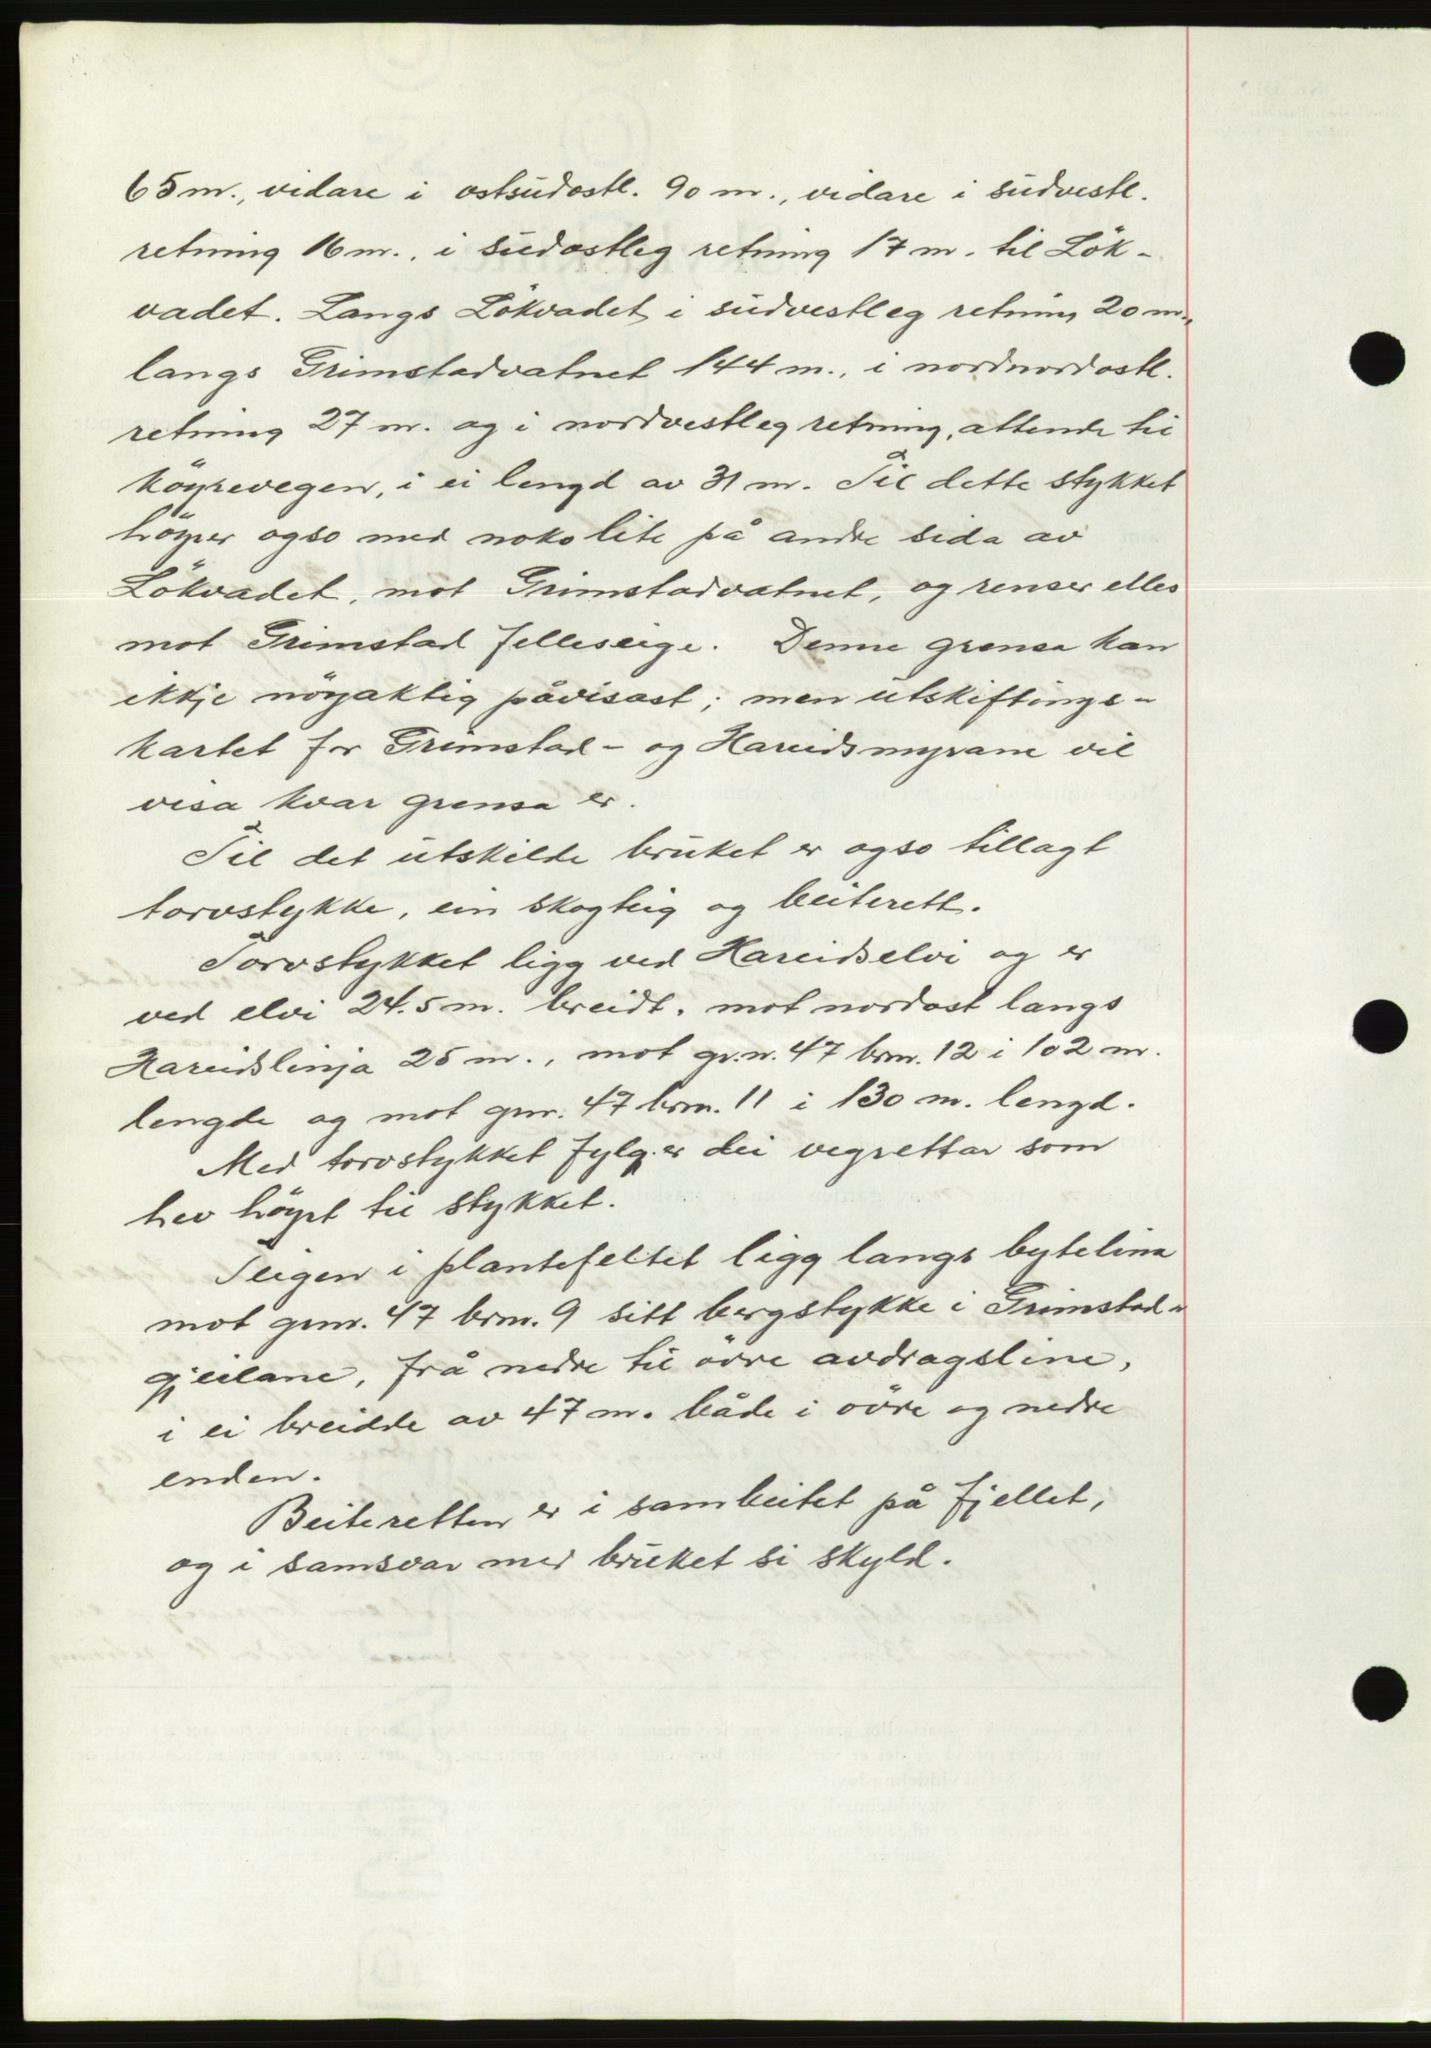 65 m., vidare i ostsudostl. 90 m., vidare i sudvestl.
retning 16 m., i sudostleg retning 17 m. til Lök-
vadet. Langs Lökvadet i sudvestleg retning 20 m.,
langs Grimstadvatnet 144 m., i nordnordostl.
retning 27 m. og i nordvestleg retning, attende til
köyrevegen, i ei lengd av 31 m. Til dette stykket
höyrer ogso med noko lite på andre sida av
Lökvadet, mot Grimstadvatnet, og renser elles
mot Grimstad felleseige. Denne grensa kan
ikkje nöyaktig påvisast; men utskiftings-
kartet for Grimstad- og Hareidsmyrane vil
visa kvar grensa er.
Til det utskilde bruket er ogso tillagt
torvstykke, ein skogteig og beiterett.
Torvstykket ligg ved Hareidselvi og er
ved elvi 24.5 m. breidt, mot nordost langs
Hareidslinja 25 m., mot gr.n. 47 brn. 12 i 102 m.
lengde og mot gnr. 47 brn. 11 i 130 m. lengd.
Med torvstykket fylg.er dei vegrettar som
hev höyrt til stykket.
Teigen i plantefeltet ligg langs bytelina
mot gnr. 47 brn. 9 sitt bergstykke i Grimstad-
gjeilane, frå nedre til övre avdragsline,
i ei breidde av 47 m. både i övre og nedre
enden.
Beiteretten er i sambeitet på fjellet,
og i samsvar med bruket si skyld.